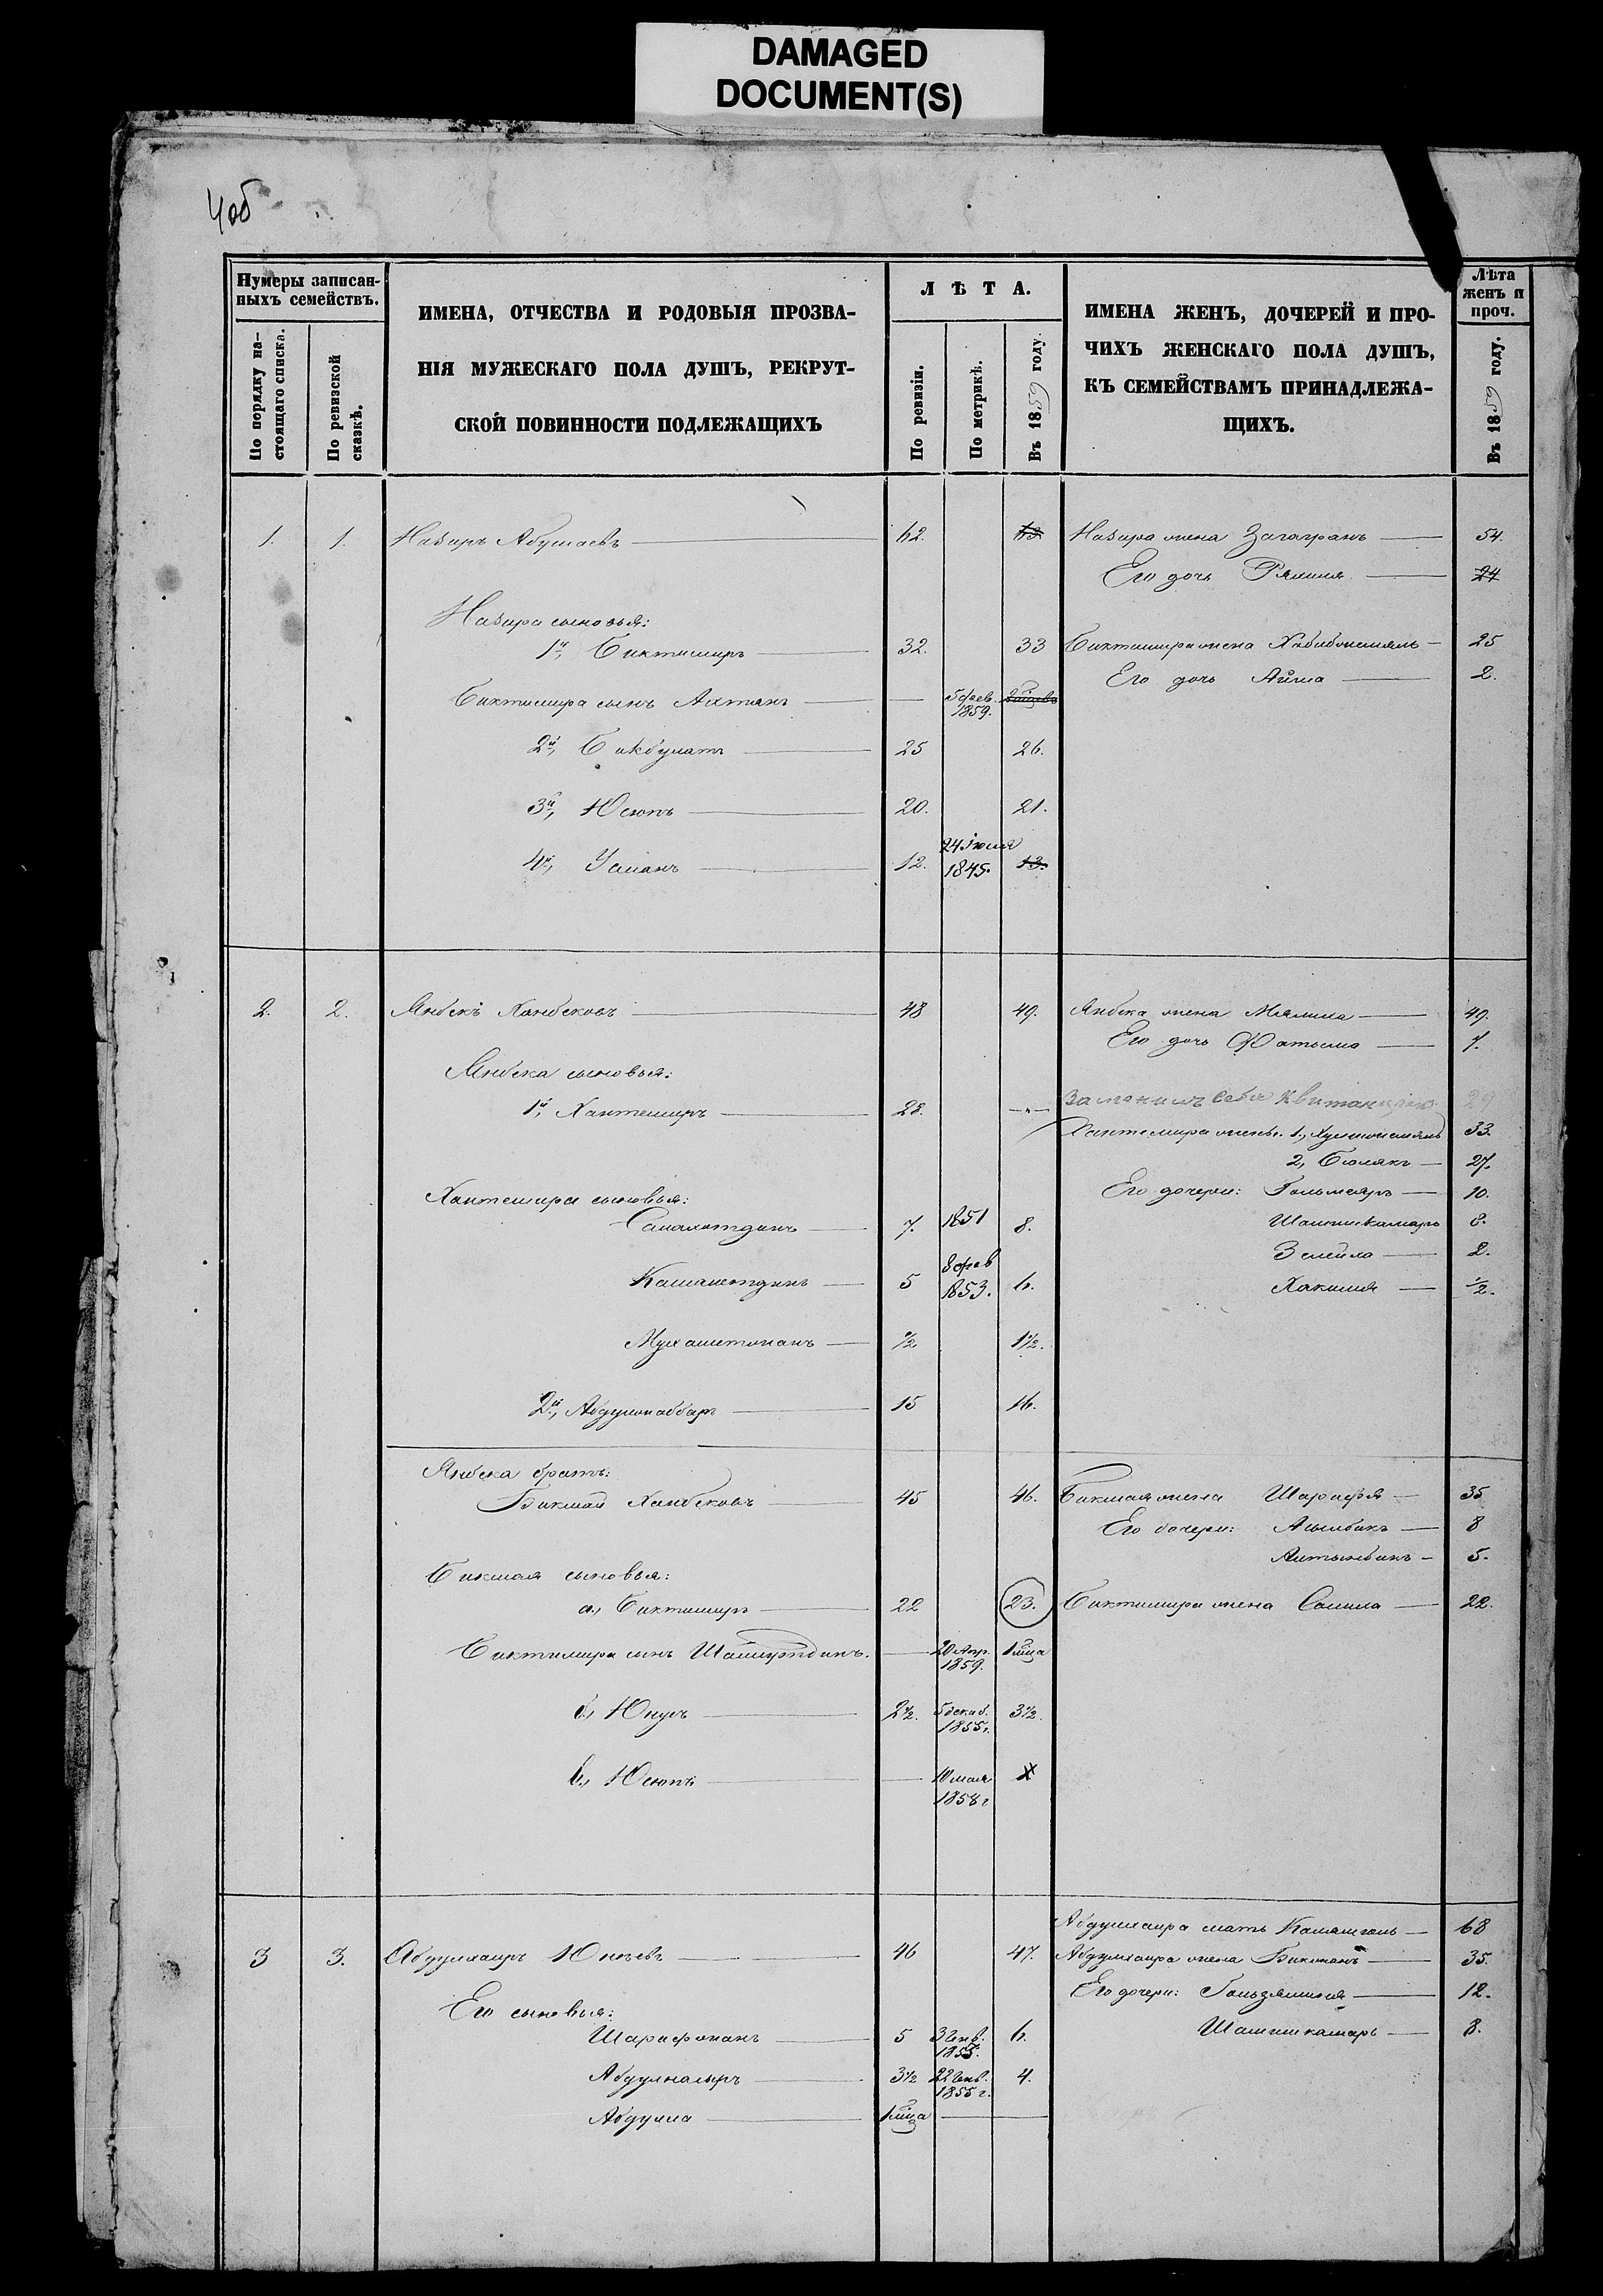 DAMAGED
DOCUMENT(S)
4об
Нумеры записан-
ныхъ семействъ.
По порядку на-
стоящаго списка.
По ревизской
сказкѣ.
ИМЕНА, ОТЧЕСТВА И РОДОВЫЯ ПРОЗВА-
НІЯ МУЖЕСКАГО ПОЛА ДУШЪ, РЕКРУТ-
СКОЙ ПОВИННОСТИ ПОДЛЕЖАЩИХЪ
ЛѢТА.
По ревизіи.
По метрикѣ.
Въ 1859 году.
ИМЕНА ЖЕНЪ, ДОЧЕРЕЙ И ПРО-
ЧИХЪ ЖЕНСКАГО ПОЛА ДУШЪ,
КЪ СЕМЕЙСТВАМЪ ПРИНАДЛЕЖА-
ЩИХЪ.
Лѣта
женъ и
проч.
Въ 1859 году.
1. 1. Назиръ Абушаевъ 62. 63. Назира жена 54.
Его дочь 24
Назира сыновья:
1й, Биктимиръ 32. 33 Биктимира жена 25
Его дочь 2.
Биктимира сынъ Ахтямъ 5 фев. 1859.
2й, Бикбулатъ 25 26.
3й, Юсюпъ 20. 21.
4й, Усманъ 12. 24 іюля 1845. 13.
2. 2. Янбекъ Ханбековъ 48 49. Янбека жена 49.
Его дочь Фатыма 7.
Янбека сыновья:
1й, Хантемиръ 28. Заменилъ себя квитанціею 29
Хантемира жены: 1, 33.
2, Бюлякъ 27.
Хантемира сыновья: Его дочери: 10.
7. 1851 8. Шамшикамаръ 8.
Земйла 2.
Камалетдинъ 5 8 фев 1853. 6. Хакимя 1/2.
Мухаметжанъ 1/2 1 1/2.
2й, Абдулжаббаръ 15 16.
Янбека братъ:
Бикмай Ханбековъ 45 46. Бикмая жена Шарафя 35
Его дочери: 8
Алтынбикъ 5.
Бикмая сыновья:
а, Биктимиръ 22 23. Биктимира жена Салима 22.
Биктимира сынъ 20 Апр. 1859. 1 мца
б, Юнусъ 2 1/2. 5 декаб. 1855г. 3 1/2.
в, Юсюпъ 10 мая 1858г
Абдулхаира мать 68
3 3. Абдулхаиръ 46 47. Абдулхаира жена 35.
Его дочери: 12.
Его сыновья: Шамшикамаръ 8.
Шарафжанъ 5 6.
Абдулнасыръ 3 1/2 22 1855 г. 4.
Абдулла 1 мца